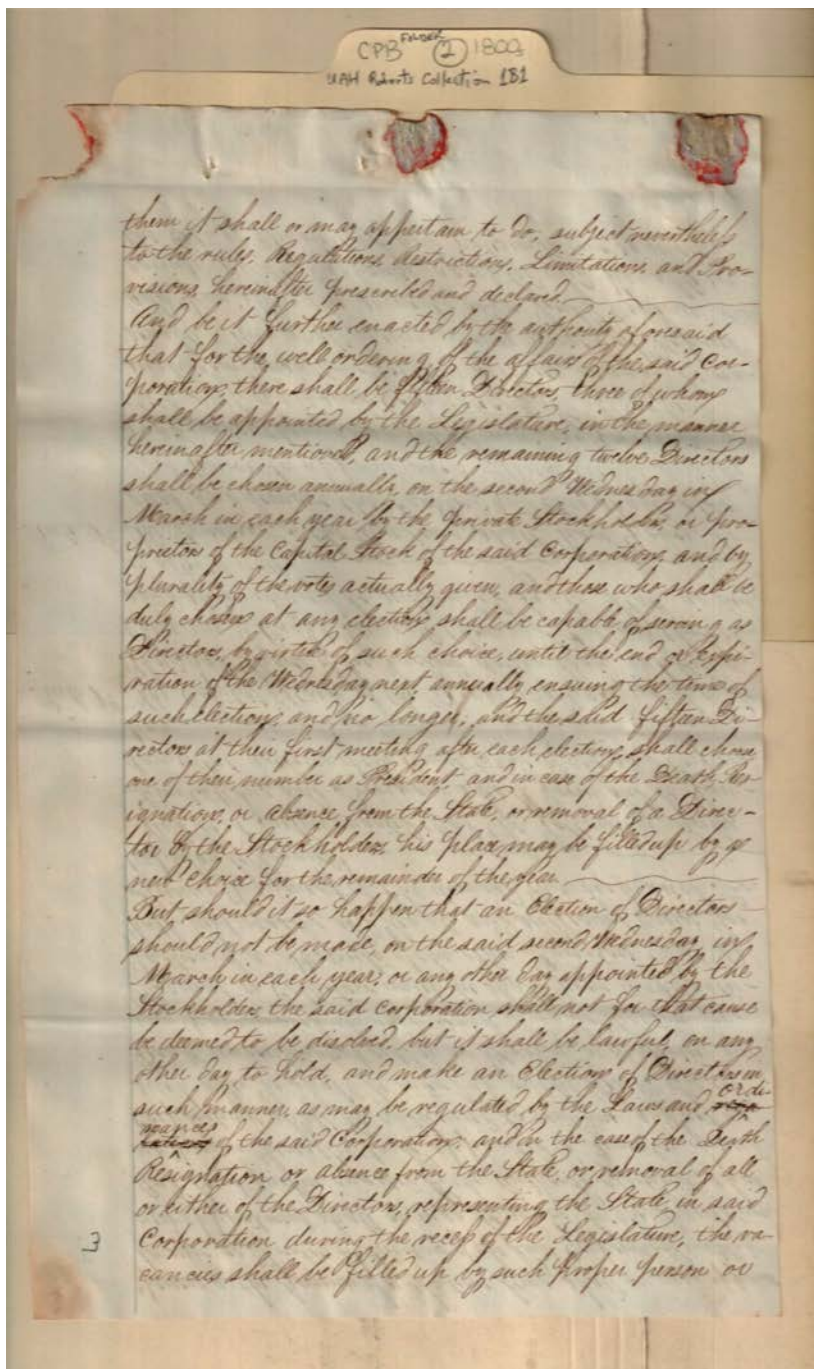 CPB FOLDER 2 180
UAH Roberts Collection 181
them it shall or may appertain to do, subject nevertheless
to the rules, Regulations, Restrictions, Limitations, and Pro-
visions, hereinafter prescribed and declared
And be it further enacted by the authority aforesaid
that for the well ordering of the affairs of the said Cor-
poration, there shall be fifteen Directors, three of whom
shall be appointed by the Legislature, in the manner
hereinafter mentioned, and the remaining twelve Directors
shall be chosen annually, on the second Wednesday in
March in each year by the private Stockholders, or pro-
prietors of the Capital Stock of the said Corporation, and by
plurality of the votes actually given, and those who shall be
duly chosen at any election, shall be capable of serving as
Director, by virtue of such choice, until the end or Expi-
ration of the Wednesday next, annually ensuing the time of
such election, and no longer, and the said fifteen Di-
rectors at their first meeting after each election, shall choose
one of their number as President, and in case of the Death, Res-
ignation, or absence from the State, or removal of a Direc-
tor by the Stockholders, his place may be filled up by a
new choice for the remainder of the year
But should it so happen that an Election of Directors
should not be made, on the said second Wednesday in
March in each year, or any other day appointed by the
Stockholders, the said Corporation shall not for that cause
be deemed to be disolved, but it shall be lawful, on any
other day to hold, and make an Election of Directors in
such manner, as may be regulated by the Laws and ordi-
nances of the said Corporation, and in the case of the Death
Resignation or absence from the State, or removal of all
or either of the Directors, representing the State in said
Corporation during the recess of the Legislature, the va-
cancies shall be filled up by such proper person or
3